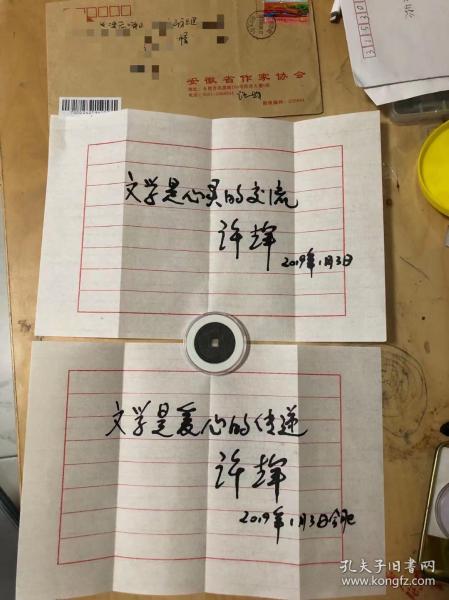 安徽省作家协会
文学是心灵的交流
许辉
2019年1月3日
文学是爱心的传递
许辉
2019年1月3日合肥
孔夫子旧书网
www.kongfz.com